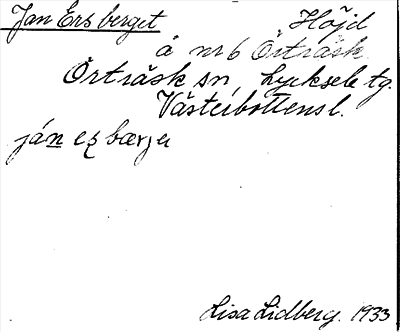 Jan Ersberget Höjd
å nr 6 Örträsk
Örträsk sn, Lycksele tg.
Västerbottens l.
ján eʂbærje
Lisa Lidberg. 1933